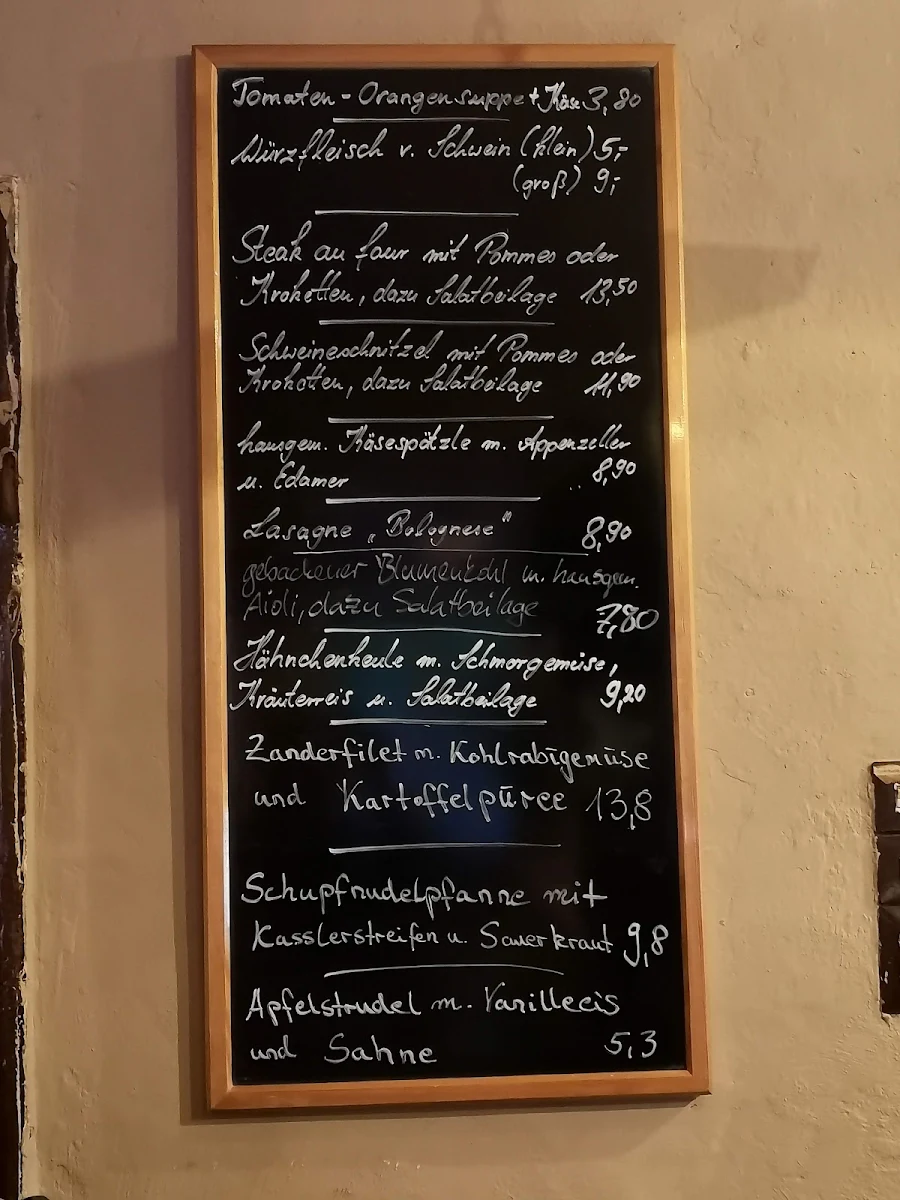 Tomaten-Orangensuppe + Käse 3,80
Würzfleisch v. Schwein (klein) 5,-
(groß) 9,-
Steak au four mit Pommes oder
Kroketten, dazu Salatbeilage 13,50
Schweineschnitzel mit Pommes oder
Kroketten, dazu Salatbeilage 11,90
hausgem. Käsespätzle m. Appenzeller
u. Edamer .. 8,90
Lasagne „Bolognese" 8,90
gebackener Blumenkohl m. hausgem.
Aioli, dazu Salatbeilage 7,80
Hähnchenkeule m. Schmorgemüse,
Kräuterreis u. Salatbeilage 9,20
Zanderfilet m. Kohlrabigemüse
und Kartoffelpüree 13,8
Schupfnudelpfanne mit
Kasslerstreifen u. Sauerkraut 9,8
Apfelstrudel m. Vanilleeis
und Sahne 5,3